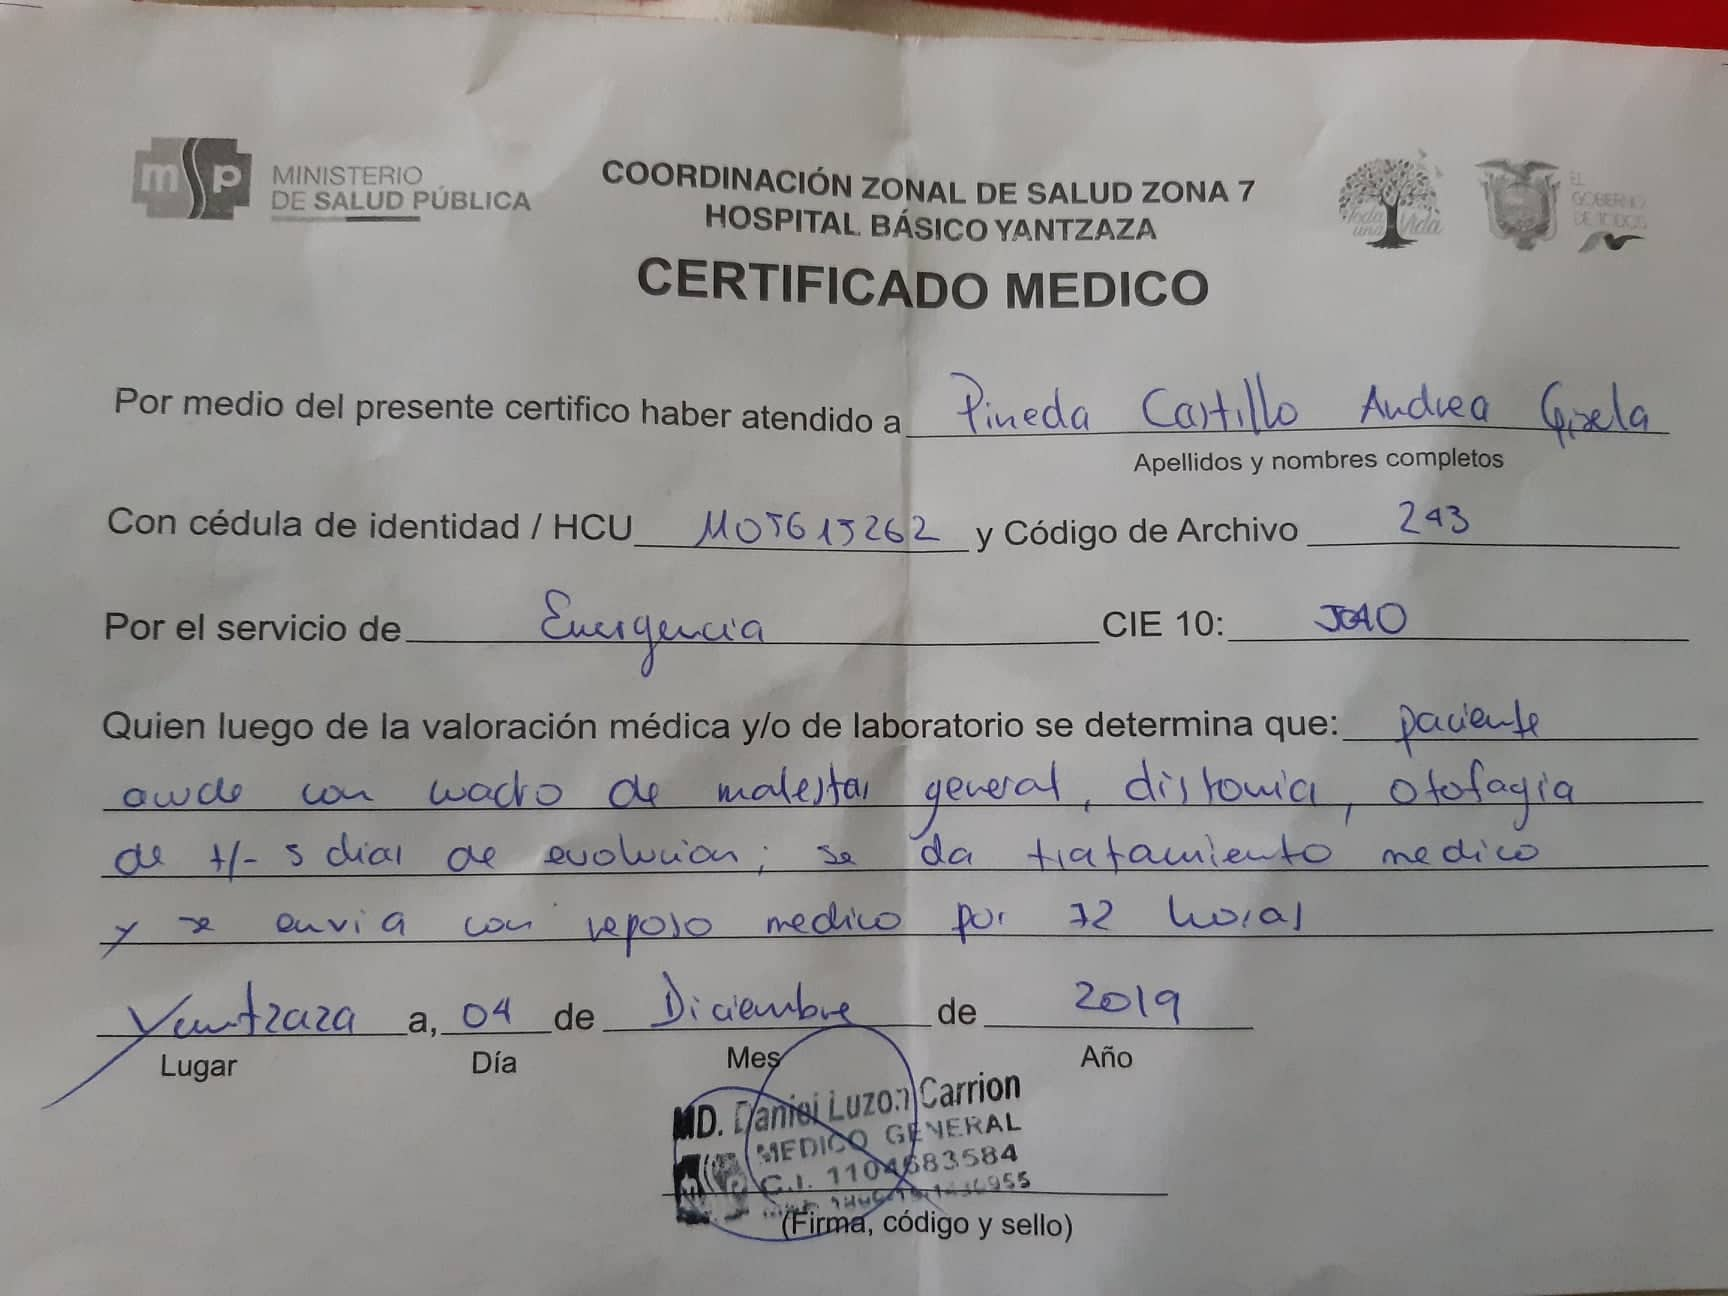 msp MINISTERIO
DE SALUD PÚBLICA
COORDINACIÓN ZONAL DE SALUD ZONA 7
HOSPITAL BÁSICO YANTZAZA
CERTIFICADO MEDICO
Toda
una Vida
EL
GOBIERNO
DE TODOS
Por medio del presente certifico haber atendido a Pineda Castillo Andrea Gisela
Apellidos y nombres completos
Con cédula de identidad / HCU 1105615262 y Código de Archivo 243
Por el servicio de Emergencia CIE 10: J040
Quien luego de la valoración médica y/o de laboratorio se determina que: paciente
acude con cuadro de malestar general, distonia, otofagia
de +/- 5 dias de evolucion; se da tratamiento medico
y se envia con reposo medico por 72 horas
Yantzaza a, 04 de Diciembre de 2019
Lugar Día Mes Año
MD. Daniel Luzon Carrion
MEDICO GENERAL
C.I. 1104683584
(Firma, código y sello)